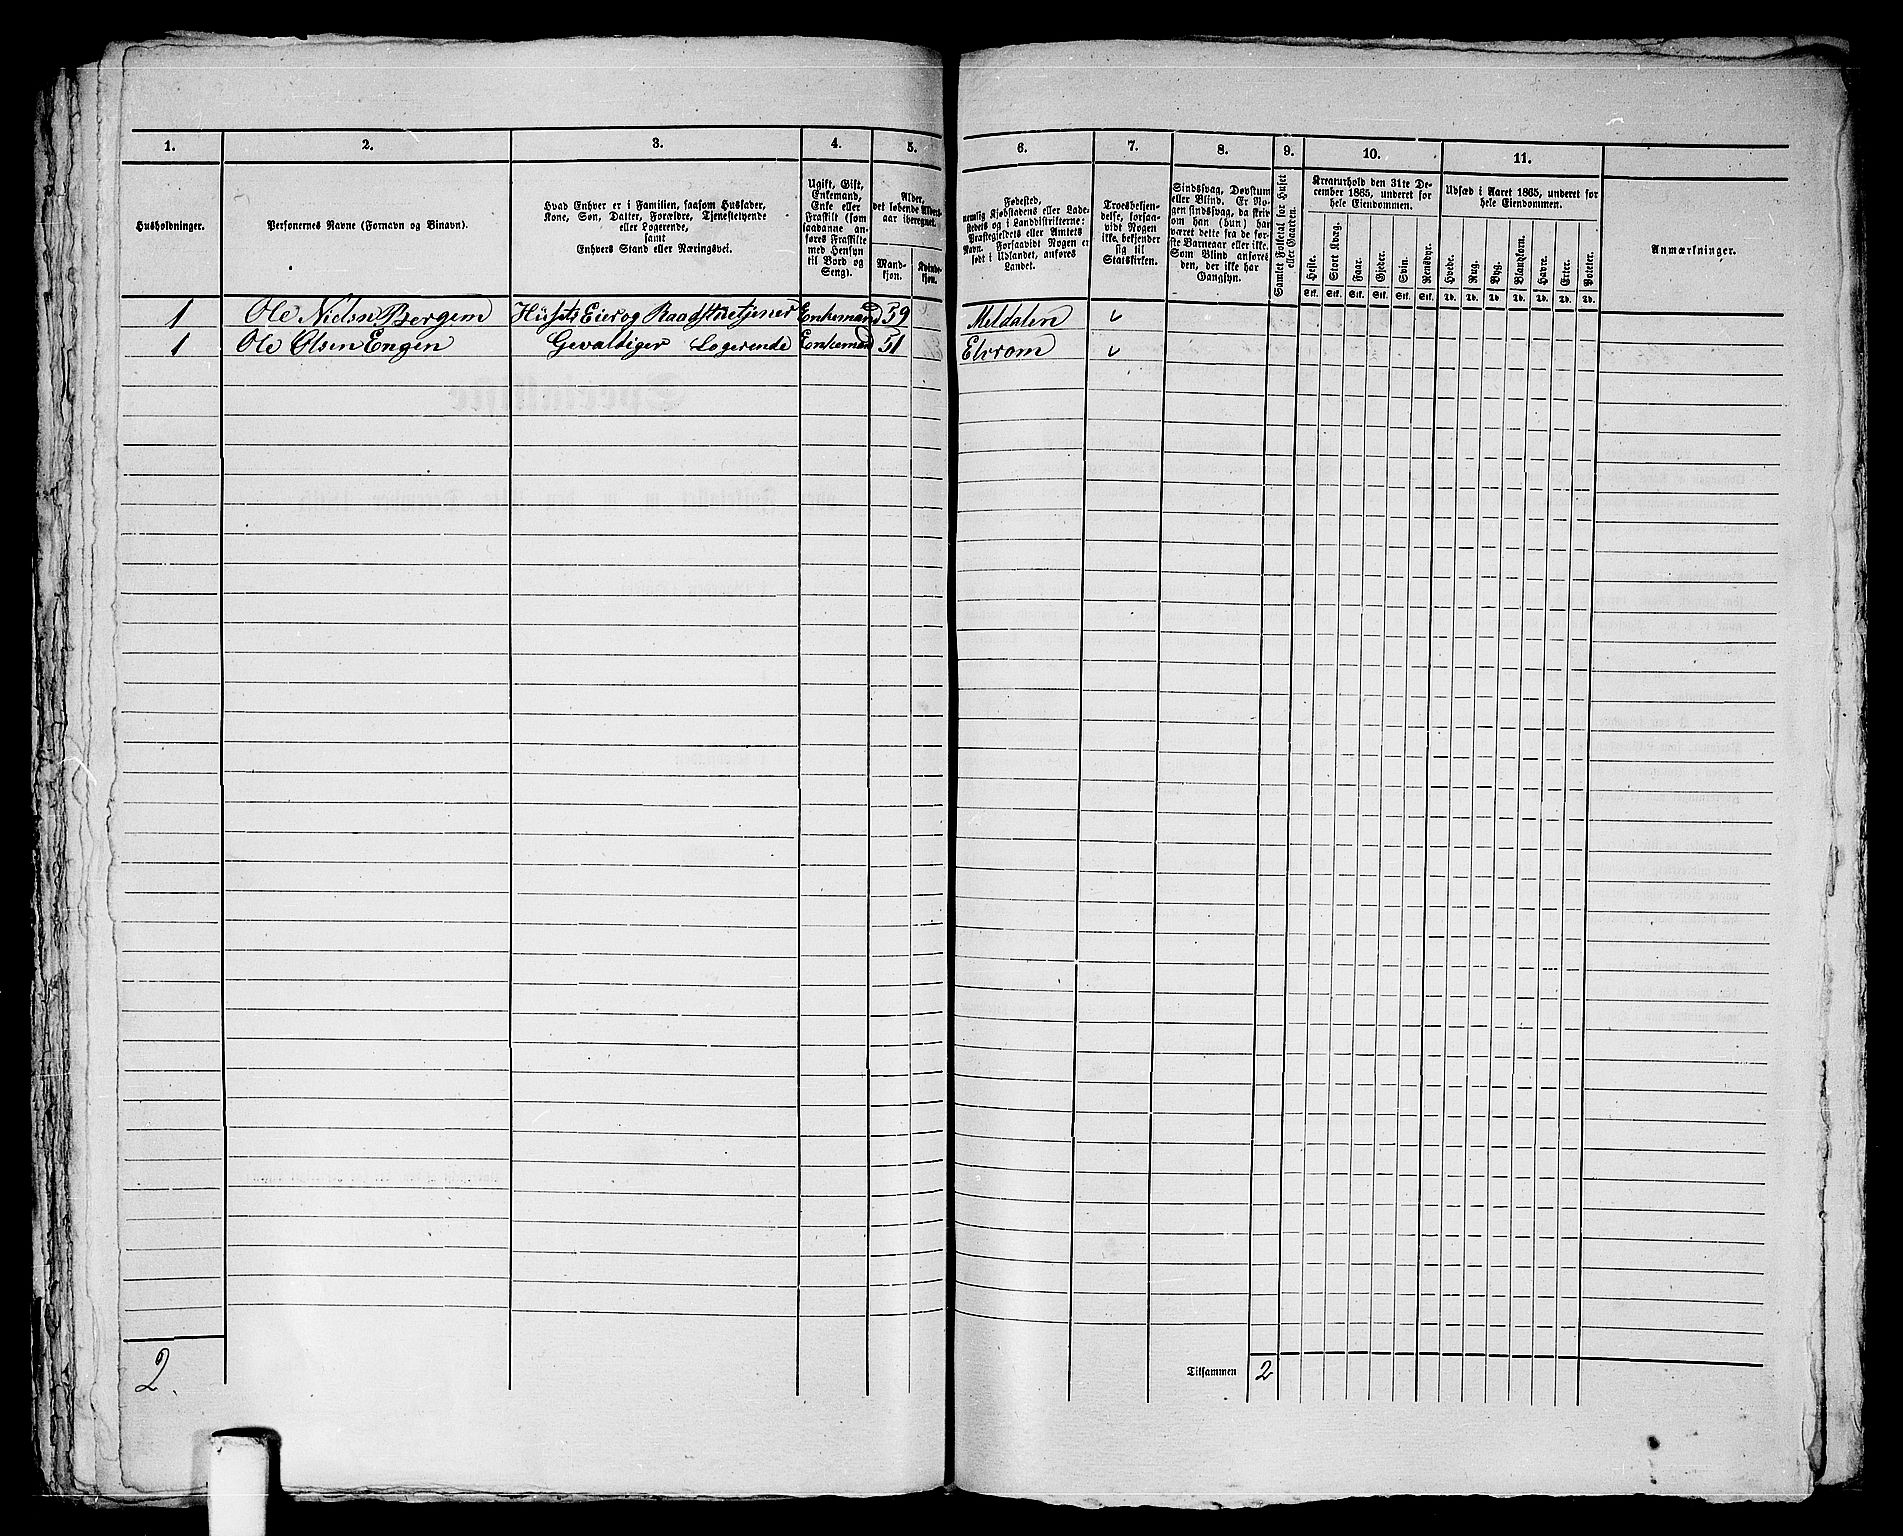 1. 2. 3. 4. 5. 6. 7. 8. 9. 10. 11.
Husholdninger.
Personernes Navne (Fornavn og Binavn).
Hvad Enhver er i Familien, saasom Husfader,
Kone, Søn, Datter, Forældre, Tjenestetyende
eller Logerende,
samt
Enhvers Stand eller Næringsvei.
Ugift, Gift,
Enkemand,
Enke eller
Fraskilt (som
saadanne an-
føres Fraskilte
med Hensyn
til Bord og
Seng).
Alder,
det løbende Alders-
aar iberegnet.
Mand-
kjøn.
Kvinde-
kjøn.
Fødested,
nemlig Kjøbstadens eller Lade-
stedets og i Landdistrikterne:
Præstegjeldets eller Amtets
Navn. Forsaavidt Nogen er
født i Udlandet, anføres
Landet.
Troesbekjen-
delse, forsaa-
vidt Nogen
ikke bekjender
sig til
Statskirken.
Sindssvag, Døvstum
eller Blind. Er No-
gen sindssvag, da skriv
om han (hun) har
været dette fra de før-
ste Barneaar eller ikke.
Som Blind anføres
den, der ikke har
Gangsyn.
Samlet Folketal for Huset
eller Gaarden.
Kreaturhold den 31te De-
cember 1865, underet for
hele Eiendommen.
Heste. Stort Kvæg. Faar. Gjeder. Svin. Rensdyr.
Stk. Stk. Stk. Stk. Stk. Stk.
Udsæd i Aaret 1865, underet for
hele Eiendommen.
Hvede. Rug. Byg. Blandkorn. Havre. Erter. Poteter.
Td. Td. Td. Td. Td. Td. Td.
Anmærkninger.
1 Ole Nielsn Bergem Husets Eier og Raadstuetjener Enkemand 59 Meldalen
1 Ole Olsen Engen Gevaldiger Logerende Enkemand 51
2.
Tilsammen 2